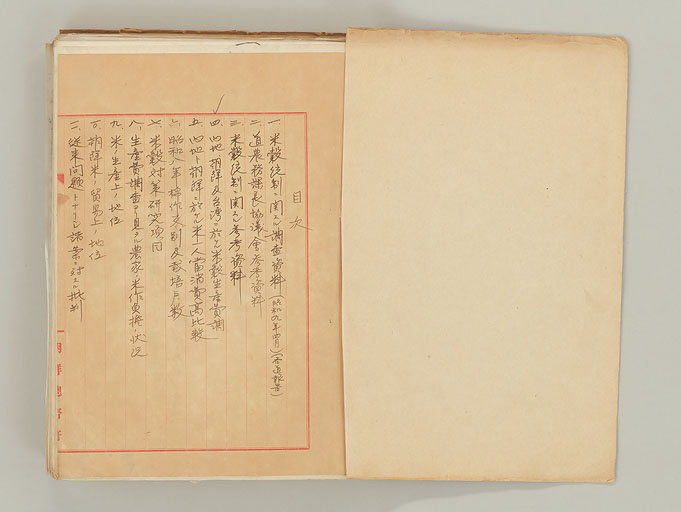 目次
一、米穀統制ニ関スル調査資料（昭和九年四月）（各道報告）
二、道農務課長協議会参考資料
三、米穀統制ニ関スル参考資料
四、内地、朝鮮及台湾ニ於ケル米穀生産費調
五、内地ト朝鮮ニ於ケル米一人当消費高比較
六、昭和八年棉作支別及栽培戸数
七、米穀対策研究項目
八、生産費調査ヨリ見タル農家ノ米作更揆ノ状況
九、米ノ生産上ノ地位
一〇、朝鮮米ノ貿易上ノ地位
一一、従来問題トナリシ諸案ニ対スル批判
朝鮮総督府